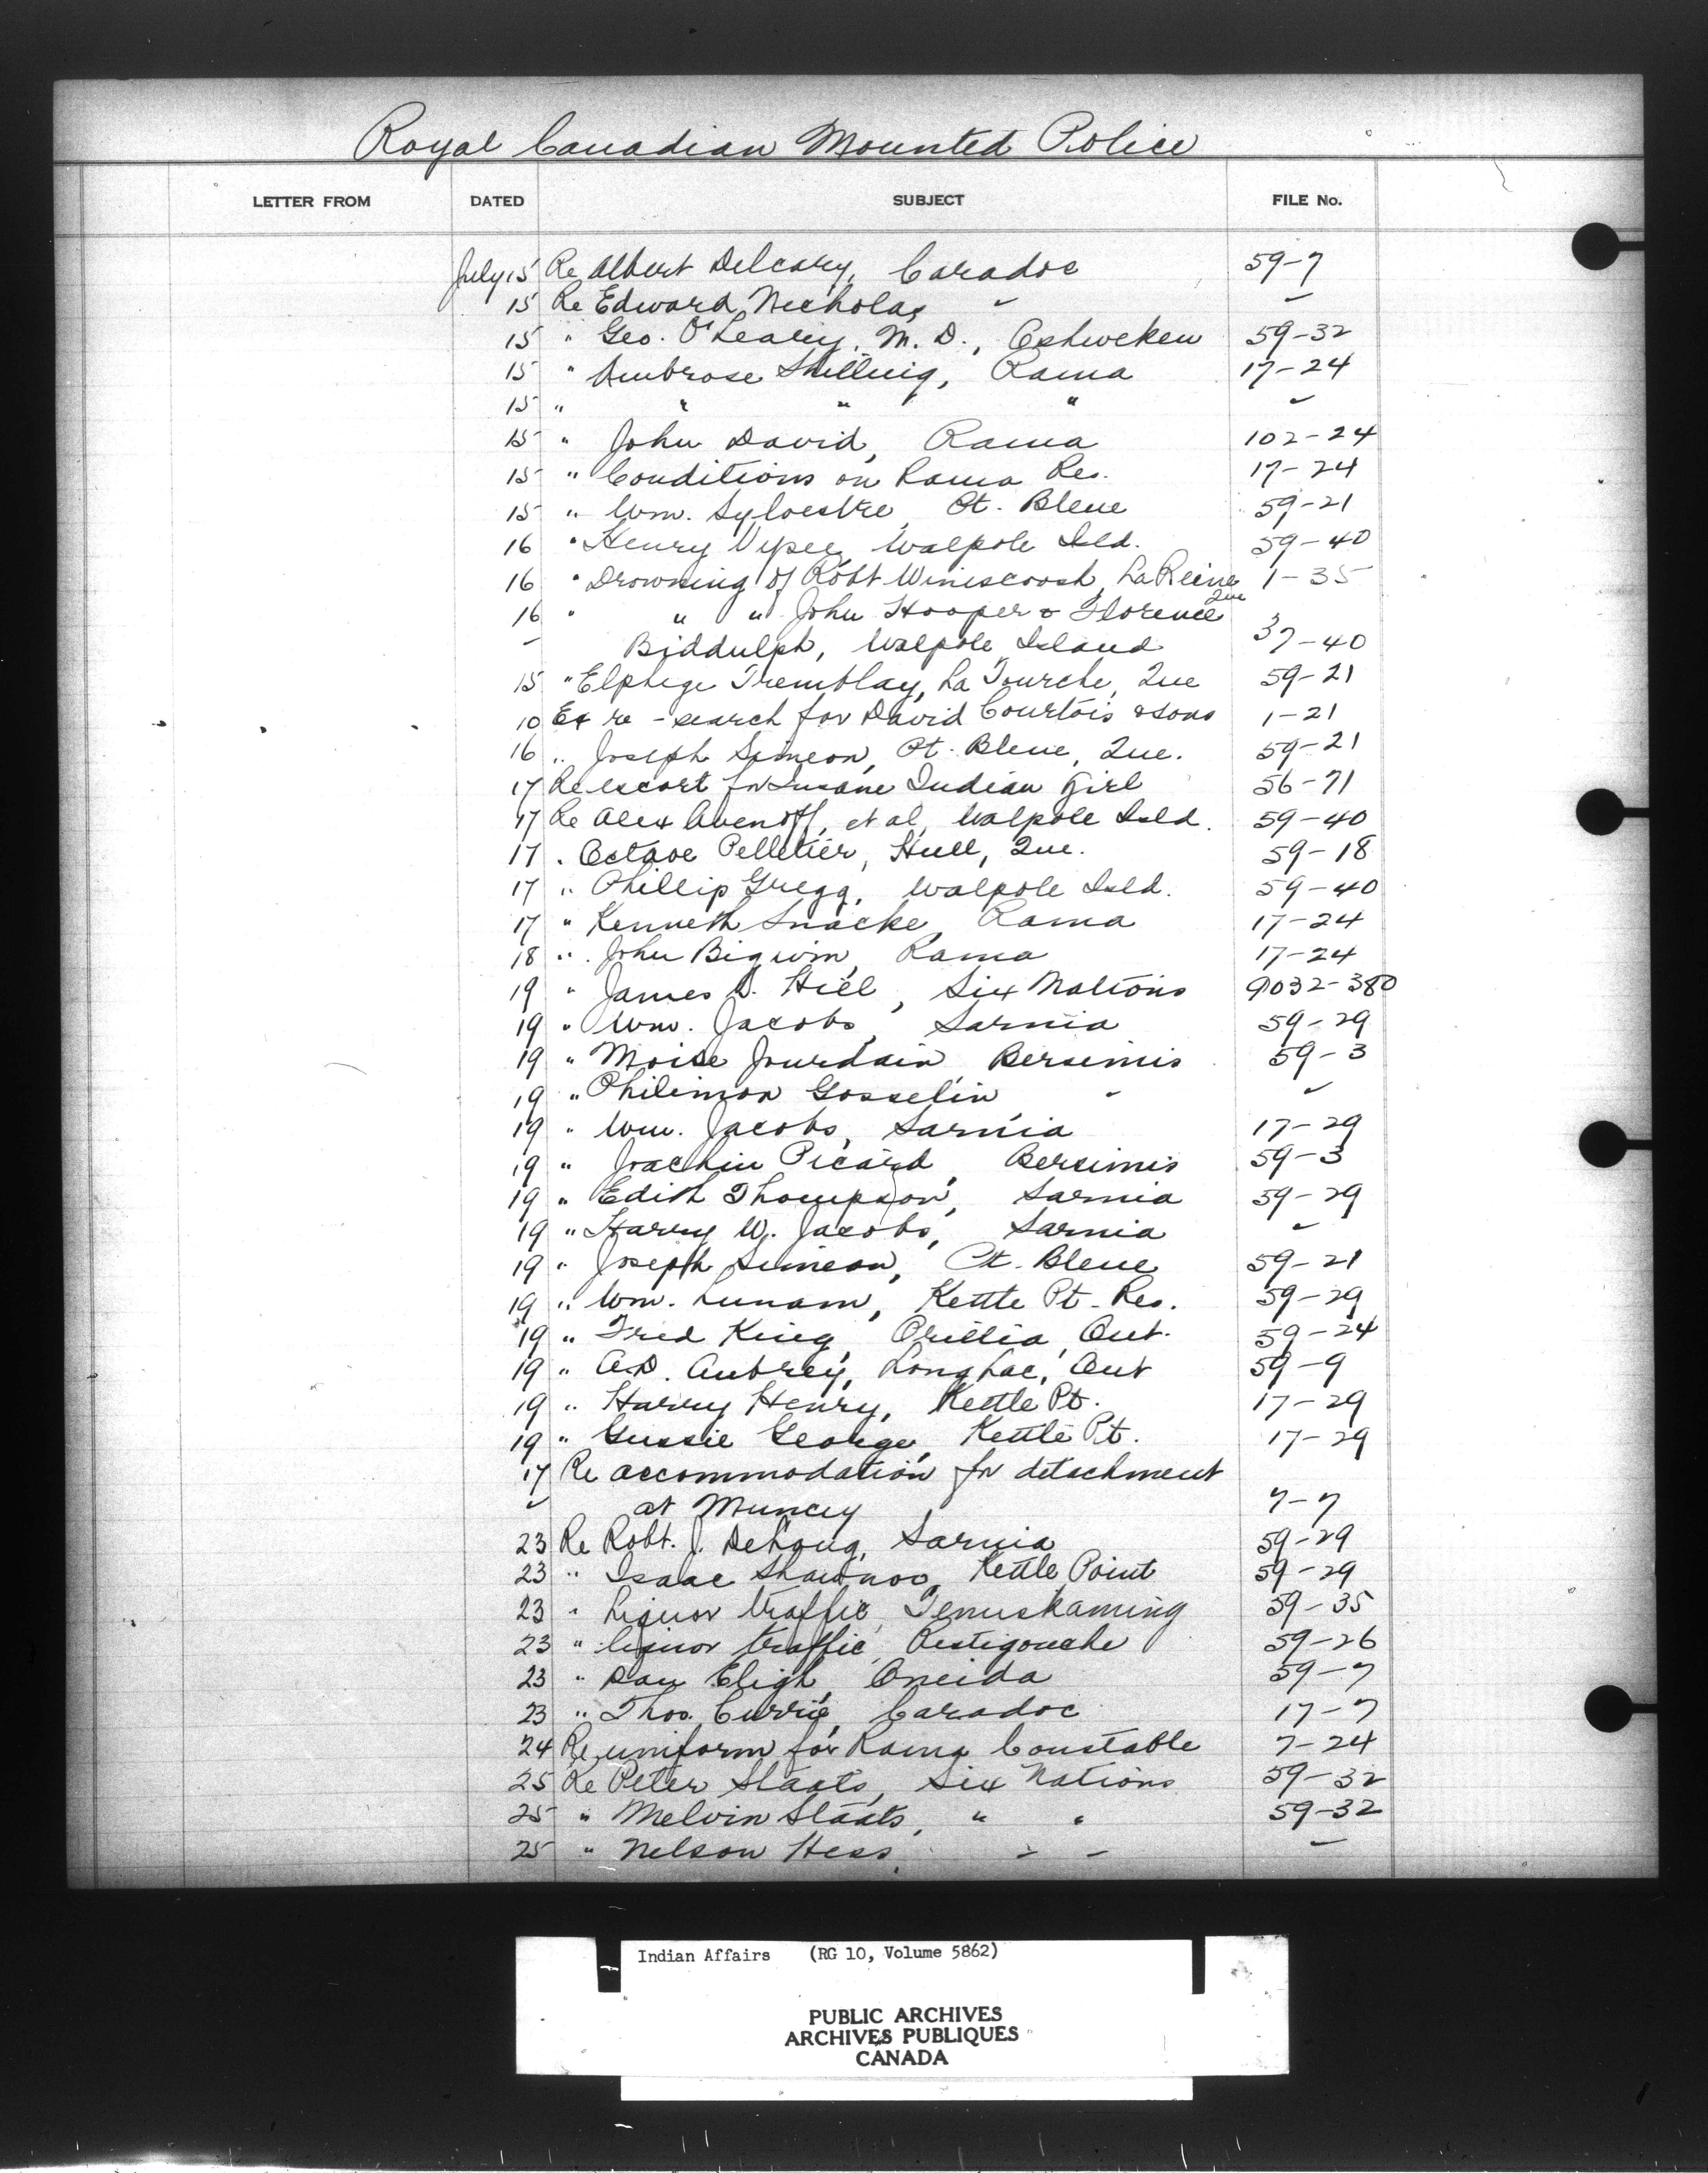 Royal Canadian Mounted Police
LETTER FROM DATED SUBJECT FILE No.
July 15 Re Albert Deleary, Caradoc 59-7
15 Re Edward Nicholas " "
15 " Geo. O'Leary, M.D., Oshweken 59-32
15 " Ambrose Shilling, Rama 17-24
15 " " " " "
15 " John David, Rama 102-24
15 " Conditions on Rama Res. 17-24
15 " Wm. Sylvestre, Pt. Bleue 59-21
16 " Henry Walpole Isld. 59-40
16 " Drowning of Robt Winiscoosh, La Reine Que 1-35
16 " " " John Hooper & Florence
" Biddulph, Walpole Island 37-40
15 " Elphege Tremblay, La Tourche, Que 59-21
10 Ex re - search for David Courtois & sons 1-21
16 " Joseph Simeon, Pt. Bleue, Que. 59-21
17 Re escort for Insane Indian Girl 56-71
17 Re Alex et al, Walpole Isld. 59-40
17 " Octave Pelletier, Hull, Que. 59-18
17 " Phillip Gregg, Walpole Isld. 59-40
17 " Kenneth Snacke, Rama 17-24
18 " John Bigwin, Rama 17-24
19 " James D. Hill, Six Nations 9032-380
19 " Wm. Jacobs, Sarnia 59-29
19 " Moise Jourdain, Bersimis 59-3
19 " Philimon Gosselin, " "
19 " Wm. Jacobs, Sarnia 17-29
19 " Joachin Picard, Bersimis 59-3
19 " Edith Thompson, Sarnia 59-29
19 " Harry W. Jacobs, Sarnia "
19 " Joseph Simeon, Pt. Bleue 59-21
19 " Wm. Lunam, Kettle Pt. Res. 59-29
19 " Fred King, Orillia, Ont. 59-24
19 " A.D. Aubrey, Long Lac, Ont 59-9
19 " Harry Henry, Kettle Pt. 17-29
19 " Gussie George, Kettle Pt. 17-29
17 Re accommodation for detachment
" at Muncey 7-7
23 Re Robt. J. DeLong, Sarnia 59-29
23 " Isaac Shawnoo, Kettle Point 59-29
23 " Liquor traffic, Temiskaming 59-35
23 " liquor traffic, Restigouche 59-26
23 " Dan Eligh, Oneida 59-7
23 " Thos. Currie, Caradoc 17-7
24 Re uniform for Rama Constable 7-24
25 Re Peter Staats, Six Nations 59-32
25 " Melvin Staats, " " 59-32
25 " Nelson Hess, " " "
Indian Affairs (RG 10, Volume 5862)
PUBLIC ARCHIVES
ARCHIVES PUBLIQUES
CANADA